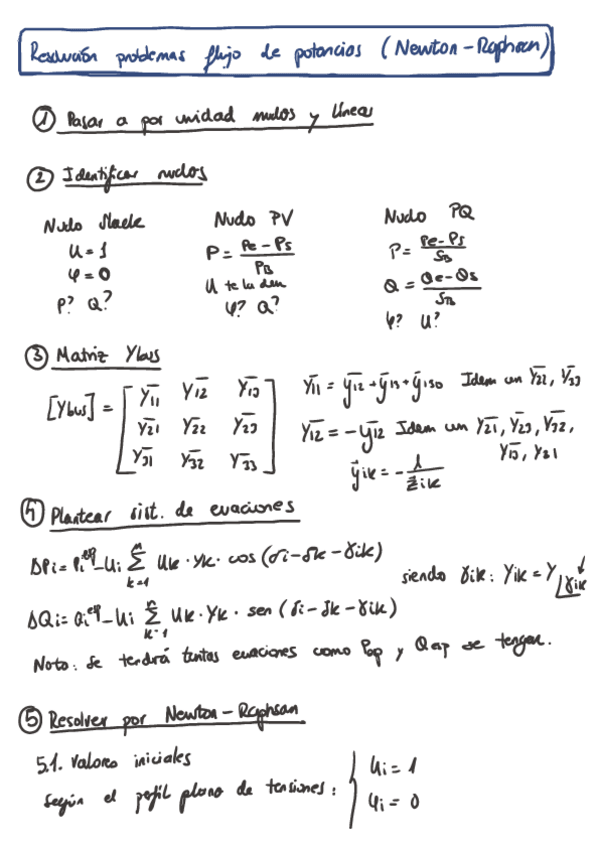 Resolución problemas flujo de potencias (Newton-Raphson)
① Pasar a por unidad nudos y líneas
② Identificar nudos
Nudo Slack
U = 1
φ = 0
P? Q?
Nudo PV
P = (Pe - Ps)/PB
U te la dan
φ? Q?
Nudo PQ
P = (Pe - Ps)/SB
Q = (Qe - Qs)/SB
φ? U?
③ Matriz Ybus
[Ybus] = [Y̅11 Y̅12 Y̅13
Y̅21 Y̅22 Y̅23
Y̅31 Y̅32 Y̅33]
Y̅11 = y̅12 + y̅13 + y̅130 Idem con Y̅22, Y̅33
Y̅12 = -y̅12 Idem con Y̅21, Y̅23, Y̅32,
Y̅13, Y̅31
y̅ik = - 1/z̅ik
④ Plantear sist. de ecuaciones
ΔPi = Pi^esp - Ui Σ(k=1, n) Uk · Yk · cos (δi - δk - γik)
siendo γik: Yik = Y∠γik
ΔQi = Qi^esp - Ui Σ(k=1, n) Uk · Yk · sen (δi - δk - γik)
Nota: Se tendrá tantas ecuaciones como Pesp y Qesp se tengan.
⑤ Resolver por Newton-Raphson
5.1. Valores iniciales
según el perfil plano de tensiones: { Ui = 1
φi = 0